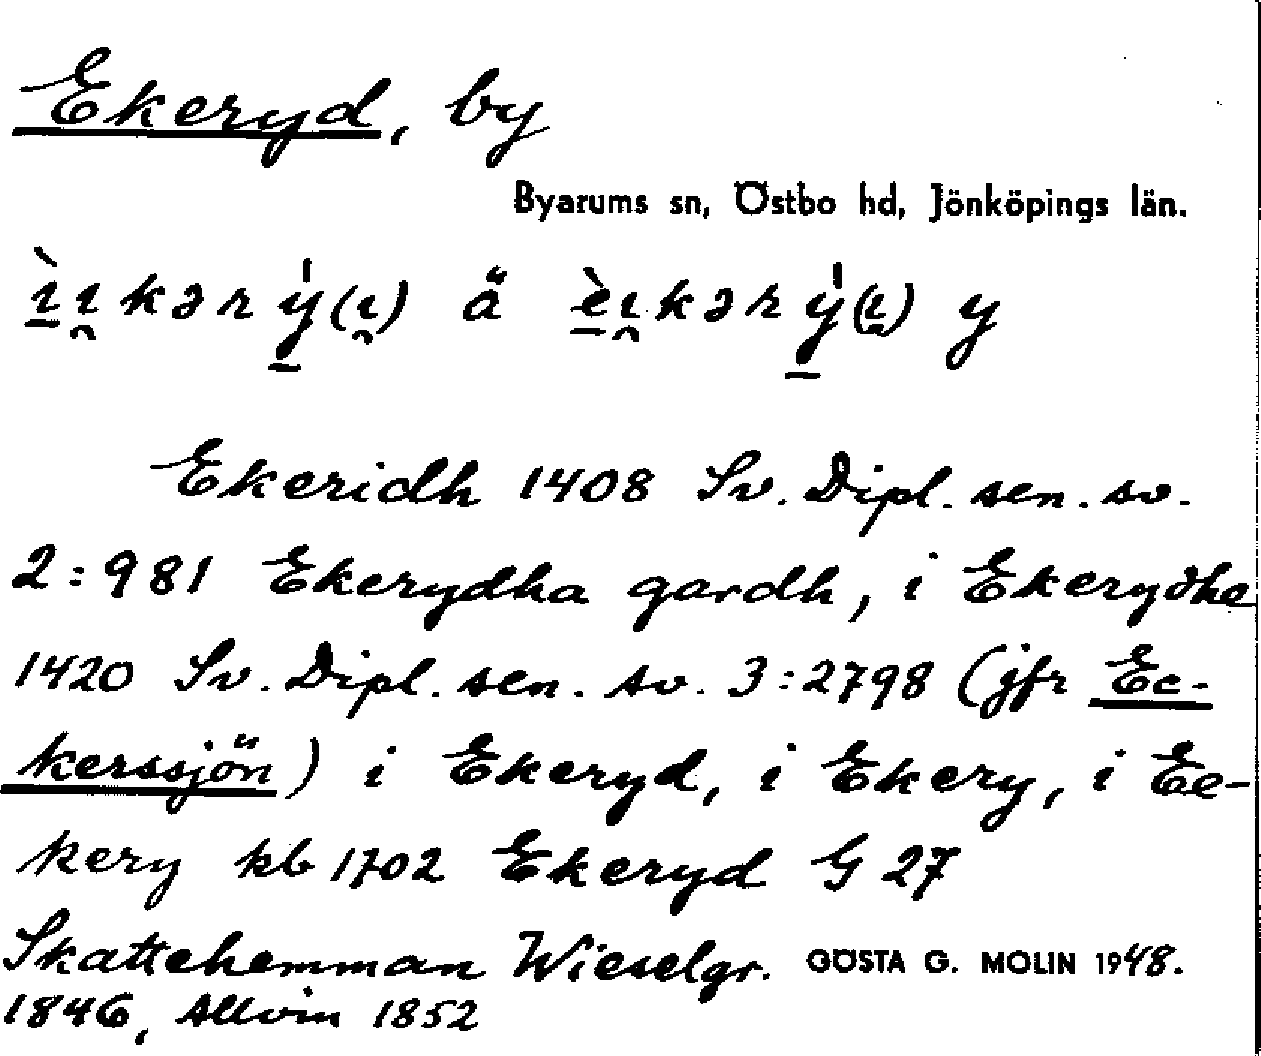 Ekeryd, by
Byarums sn, Östbo hd, Jönköpings län.
ı̱̀ı̯kərẏ̱(ı̯) ä è̱ı̯kərẏ̱(ı̯) y
Ekeridh 1408 Sv. Dipl. sen. sv.
2:981 Ekerydha gardh, i Ekerydhe
1420 Sv. Dipl. sen. sv. 3:2798 (jfr Ec-
kerssjön) i Ekeryd, i Ekery, i Ee-
kery kb 1702 Ekeryd G 27
Skattehemman Wieselgr. GÖSTA G. MOLIN 1948.
1846, Allvin 1852